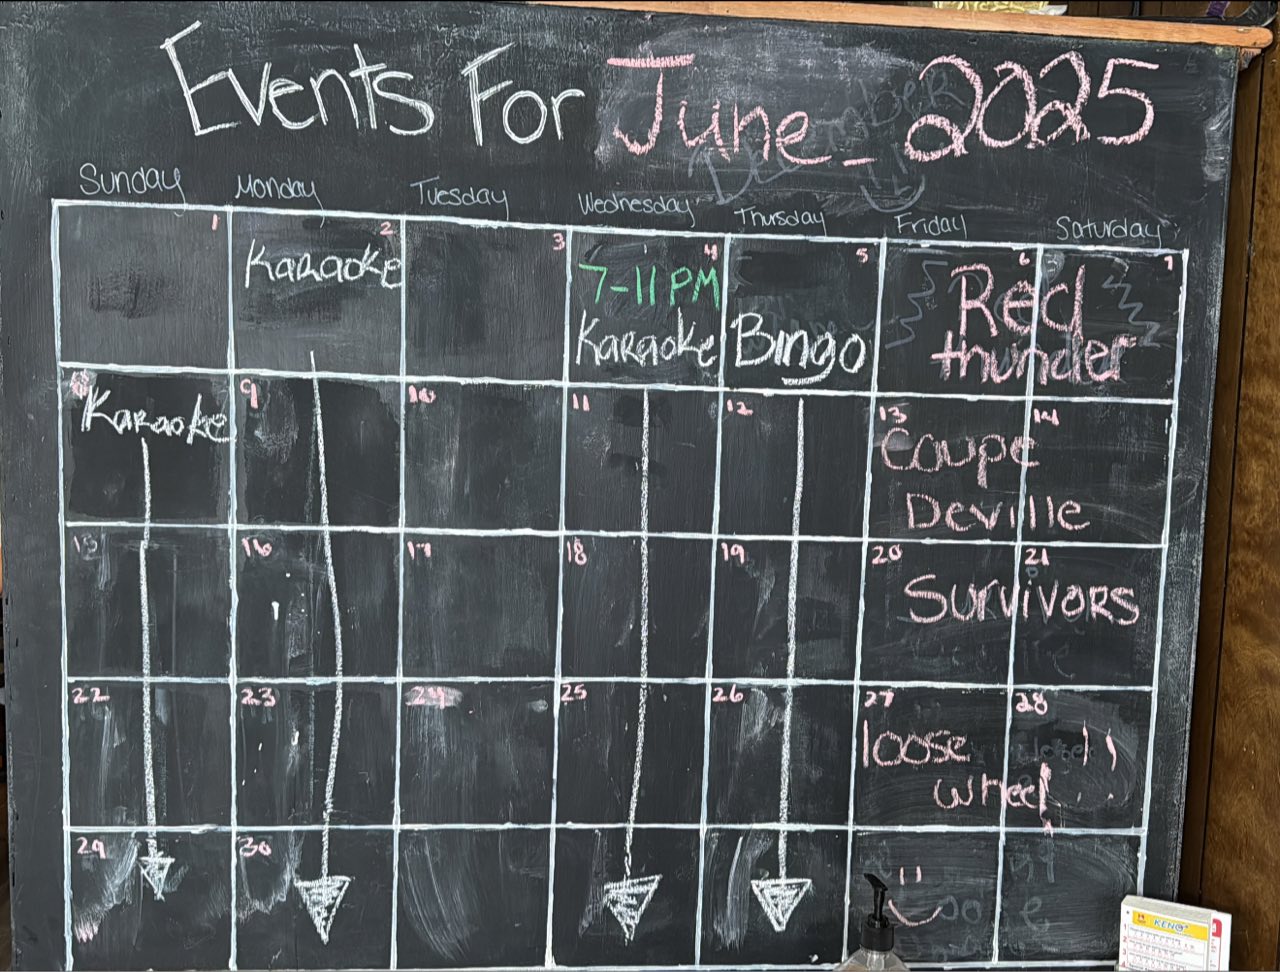 Events For June 2025
Sunday Monday Tuesday Wednesday Thursday Friday Saturday
1 2 3 4 5 6 7
Karaoke
7-11 PM
Karaoke
Bingo
Red
thunder
8 9 10 11 12 13 14
Karaoke
Coupe
Deville
15 16 17 18 19 20 21
Survivors
22 23 24 25 26 27 28
loose
wheel
29 30
KENO